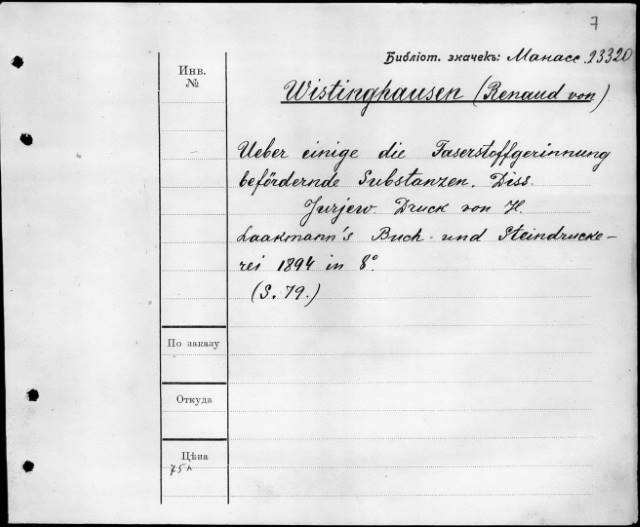 7
Библіот. значекъ: Манасс. 23320
Инв.
№
Wistinghausen (Renaud von)
Ueber einige die Faserstoffgerinnung
befördernde Substanzen. Diss.
Jurjew. Druck von H.
Laakmann's Buch- und Steindrucke-
rei 1894 in 8°
(S. 79.)
По заказу
Откуда
Цѣна
75